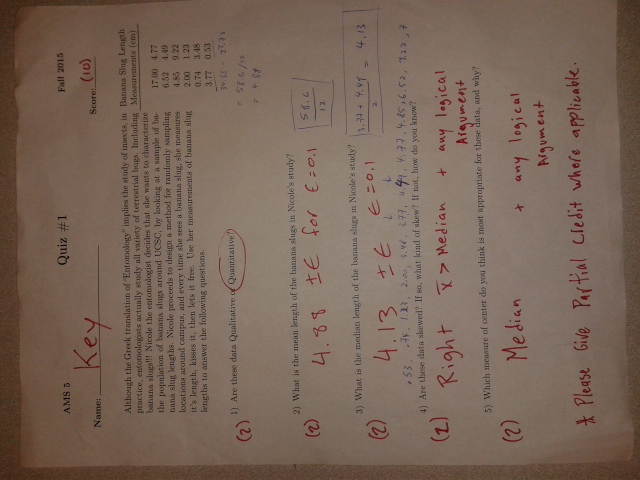 AMS 5 Quiz #1 Fall 2015
Name: Key Score: (10)
Although the Greek translation of "Entomology" implies the study of insects, in
practice, entomologists actually study all variety of terrestrial bugs. Including
banana slugs!!! Nicole the entomologist decides that she wants to characterize
the population of banana slugs around UCSC, by looking at a sample of ba-
nana slug lengths. Nicole proceeds to design a method for randomly sampling
locations around campus, and every time she sees a banana slug, she measures
it's length, kisses it, then lets it free. Use her measurements of banana slug
lengths to answer the following questions.
Banana Slug Length
Measurements (cm)
17.00 4.77
6.52 4.49
4.85 9.22
2.00 1.23
0.74 3.48
3.77 0.53
(2) 1) Are these data Qualitative or Quantitative?
= 58.6/12
= 4.88
2) What is the mean length of the banana slugs in Nicole's study?
(2) 4.88 ± ε for ε = 0.1
58.6
12
3) What is the median length of the banana slugs in Nicole's study?
(2) 4.13 ± ε ε = 0.1
3.77 + 4.49 = 4.13
2
.53, .74, 1.23, 2.00, 3.48, 3.77, 4.49, 4.77, 4.85, 6.52, 9.22,
4) Are these data skewed? If so, what kind of skew? If not, how do you know?
(2) Right x̄ > Median + any logical
Argument
5) Which measure of center do you think is most appropriate for these data, and why?
(2) Median + any logical
Argument
* Please Give Partial Credit where applicable.